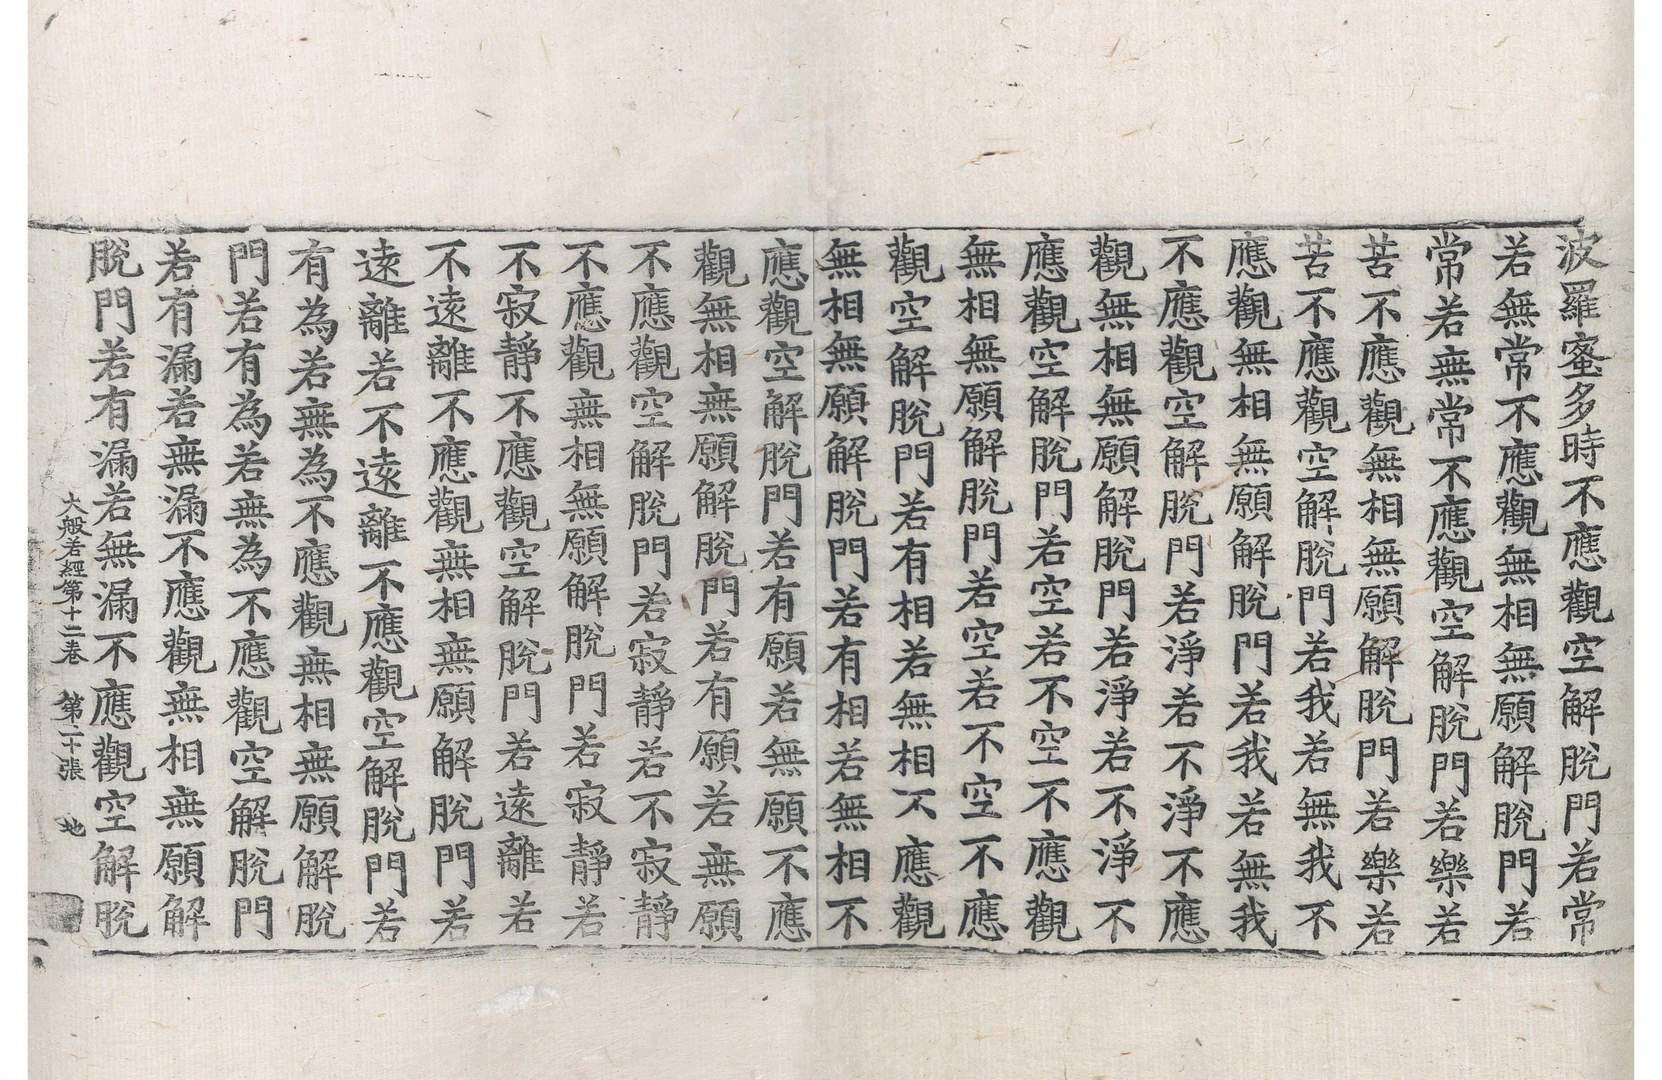 波羅蜜多時不應觀空解脫門若常
若無常不應觀無相無願解脫門若
常若無常不應觀空解脫門若樂若
苦不應觀無相無願解脫門若樂若
苦不應觀空解脫門若我若無我不
應觀無相無願解脫門若我若無我
不應觀空解脫門若淨若不淨不應
觀無相無願解脫門若淨若不淨不
應觀空解脫門若空若不空不應觀
無相無願解脫門若空若不空不應
觀空解脫門若有相若無相不應觀
無相無願解脫門若有相若無相不
應觀空解脫門若有願若無願不應
觀無相無願解脫門若有願若無願
不應觀空解脫門若寂靜若不寂靜
不應觀無相無願解脫門若寂靜若
不寂靜不應觀空解脫門若遠離若
不遠離不應觀無相無願解脫門若
遠離若不遠離不應觀空解脫門若
有為若無為不應觀無相無願解脫
門若有為若無為不應觀空解脫門
若有漏若無漏不應觀無相無願解
脫門若有漏若無漏不應觀空解脫
大般若經第十二卷 第二十張 地